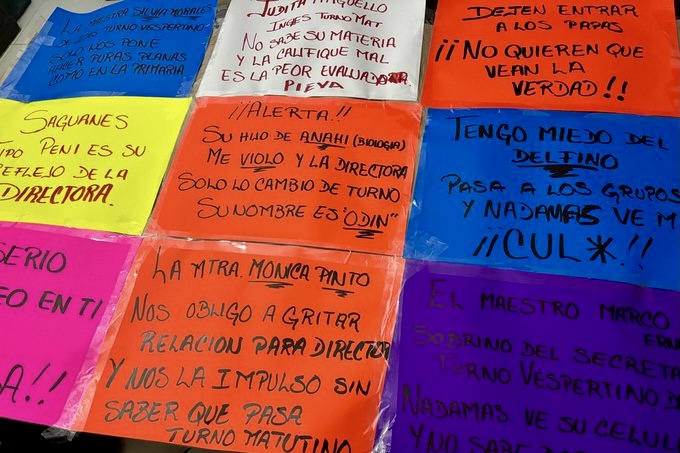 LA MESTRA SILVIA MORALES
DEL TURNO VESPERTINO
SOLO NOS PONE
HACER PURAS PLANAS
COMO EN LA PRIMARIA
JUDITH ARGUELLO
INGLES TURNO MAT
NO SABE SU MATERIA
Y LA CALIFIQUE MAL
ES LA PEOR EVALUADORA
PIEVA
DEJEN ENTRAR
A LOS PAPAS
¡¡NO QUIEREN QUE
VEAN LA
VERDAD!!
SAGUANES
PENI ES SU
REFLEJO DE LA
DIRECTORA.
¡¡ALERTA.!!
SU HIJO DE ANAHI (BIOLOGIA)
ME VIOLO Y LA DIRECTORA
SOLO LO CAMBIO DE TURNO
SU NOMBRE ES "ODIN"
TENGO MIEDO DEL
DELFINO
PASA A LOS GRUPOS
Y NADAMAS VE M
¡¡CUL*.!!
SERIO
EO EN TI
A!!
LA MTRA. MONICA PINTO
NOS OBLIGO A GRITAR
RELACION PARA DIRECTOR
Y NOS LA IMPULSO SIN
SABER QUE PASA
TURNO MATUTINO
EL MAESTRO MARCO
ERN
SOBRINO DEL SECRETA
TURNO VESPERTINO D
NADAMAS VE SU CELUL
Y NO SABE